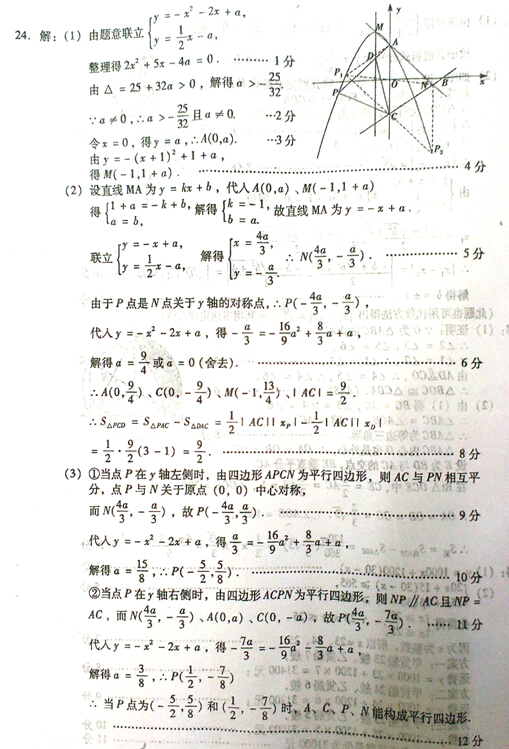 24. 解：(1) 由题意联立{y = -x² - 2x + a, y = 1/2 x - a,
整理得 2x² + 5x - 4a = 0. ……… 1分
由 △ = 25 + 32a > 0，解得 a > -25/32.
∵ a ≠ 0，∴ a > -25/32 且 a ≠ 0. …2分
令 x = 0，得 y = a，∴ A(0,a). …3分
由 y = -(x + 1)² + 1 + a，
得 M(-1,1 + a). ……… 4分
(2) 设直线 MA 为 y = kx + b，代人 A(0,a)、M(-1,1 + a)
得{1 + a = -k + b, a = b, 解得{k = -1, b = a. 故直线 MA 为 y = -x + a.
联立{y = -x + a, y = 1/2 x - a, 解得{x = 4a/3, y = -a/3. ∴ N(4a/3, -a/3). ……… 5分
由于 P 点是 N 点关于 y 轴的对称点，∴ P(-4a/3, -a/3)，
代人 y = -x² - 2x + a，得 -a/3 = -16/9 a² + 8/3 a + a，
解得 a = 9/4 或 a = 0 (舍去). ……… 6分
∴ A(0,9/4)、C(0, -9/4)、M(-1,13/4)、| AC | = 9/2.
∴ S△PCD = S△PAC - S△DAC = 1/2 | AC || xP | - 1/2 | AC || xD |
= 1/2 · 9/2 (3 - 1) = 9/2. ……… 8分
(3) ①当点 P 在 y 轴左侧时，由四边形 APCN 为平行四边形，则 AC 与 PN 相互平
分，点 P 与 N 关于原点 (0, 0) 中心对称，
而 N(4a/3, -a/3)，故 P(-4a/3, a/3). ……… 9分
代人 y = -x² - 2x + a，得 a/3 = -16/9 a² + 8/3 a + a，
解得 a = 15/8，∴ P(-5/2, 5/8). ……… 10分
②当点 P 在 y 轴右侧时，由四边形 ACPN 为平行四边形，则 NP ∥ AC 且 NP =
AC，而 N(4a/3, -a/3)、A(0,a)、C(0, -a)，故 P(4a/3, -7a/3). …… 11分
代人 y = -x² - 2x + a，得 -7a/3 = -16/9 a² - 8/3 a + a，
解得 a = 3/8，∴ P(1/2, -7/8)
∴ 当 P 点为(-5/2, 5/8) 和 (1/2, -7/8) 时，A、C、P、N 能构成平行四边形.
……… 12分
y
M
D
A
P₁
O
N
B
x
P
C
P₂